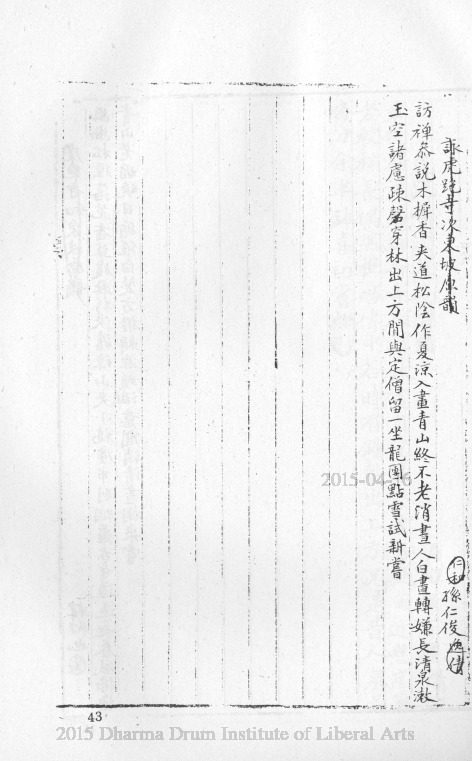 詠虎跑寺次東坡原韻
仁和 孫仁俊
訪禪叅説木樨香夾道松陰作夏涼入畫青山終不老消晝人白晝轉嫌長清泉漱
玉空諸慮疎磬穿林出上方間與定僧留一坐龍團點雪試新嘗
2015-04-16
43
2015 Dharma Drum Institute of Liberal Arts